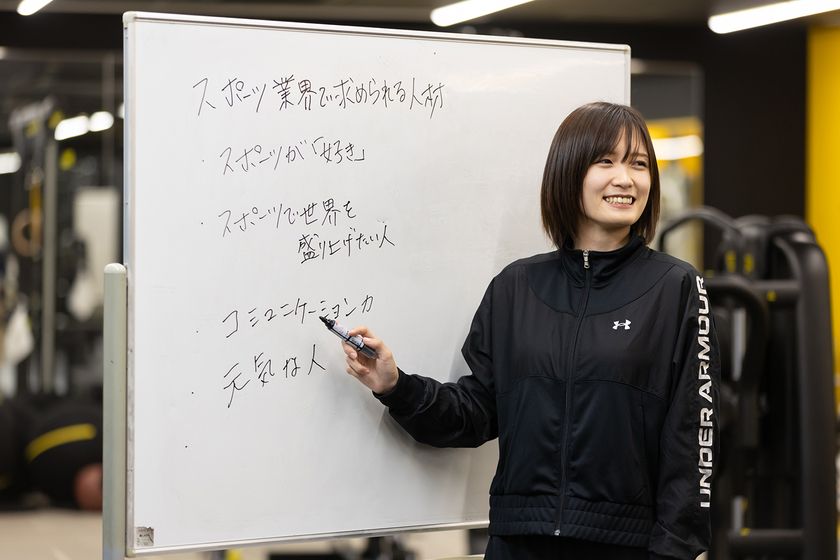 スポーツ業界で求められる人材
・スポーツが「好き」
・スポーツで世界を
盛り上げたい人
・コミュニケーション力
・元気な人
・
UNDER ARMOUR